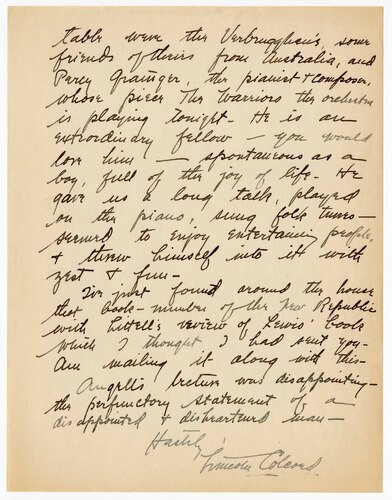 table were the Verbrugghen's, some
friends of theirs from Australia, and
Percy Grainger, the pianist & composer,
whose piece The Warriors the orchestra
is playing tonight - He is an
extrordinary fellow - you would
love him — spontaneous as a
boy, full of the joy of life - He
gave us a long talk, played
on the piano, sung folk tunes -
seemed to enjoy entertaining people,
& threw himself into it with
zest & fun -
I've just found around the house
that book-number of the New Republic
with Littell's review of Lewis' book
which I thought I had sent you -
Am mailing it along with this -
Angell's lecture was disappointing -
the perfunctory statement of a
disappointed & disheartened man -
Hastily,
Lincoln Colcord